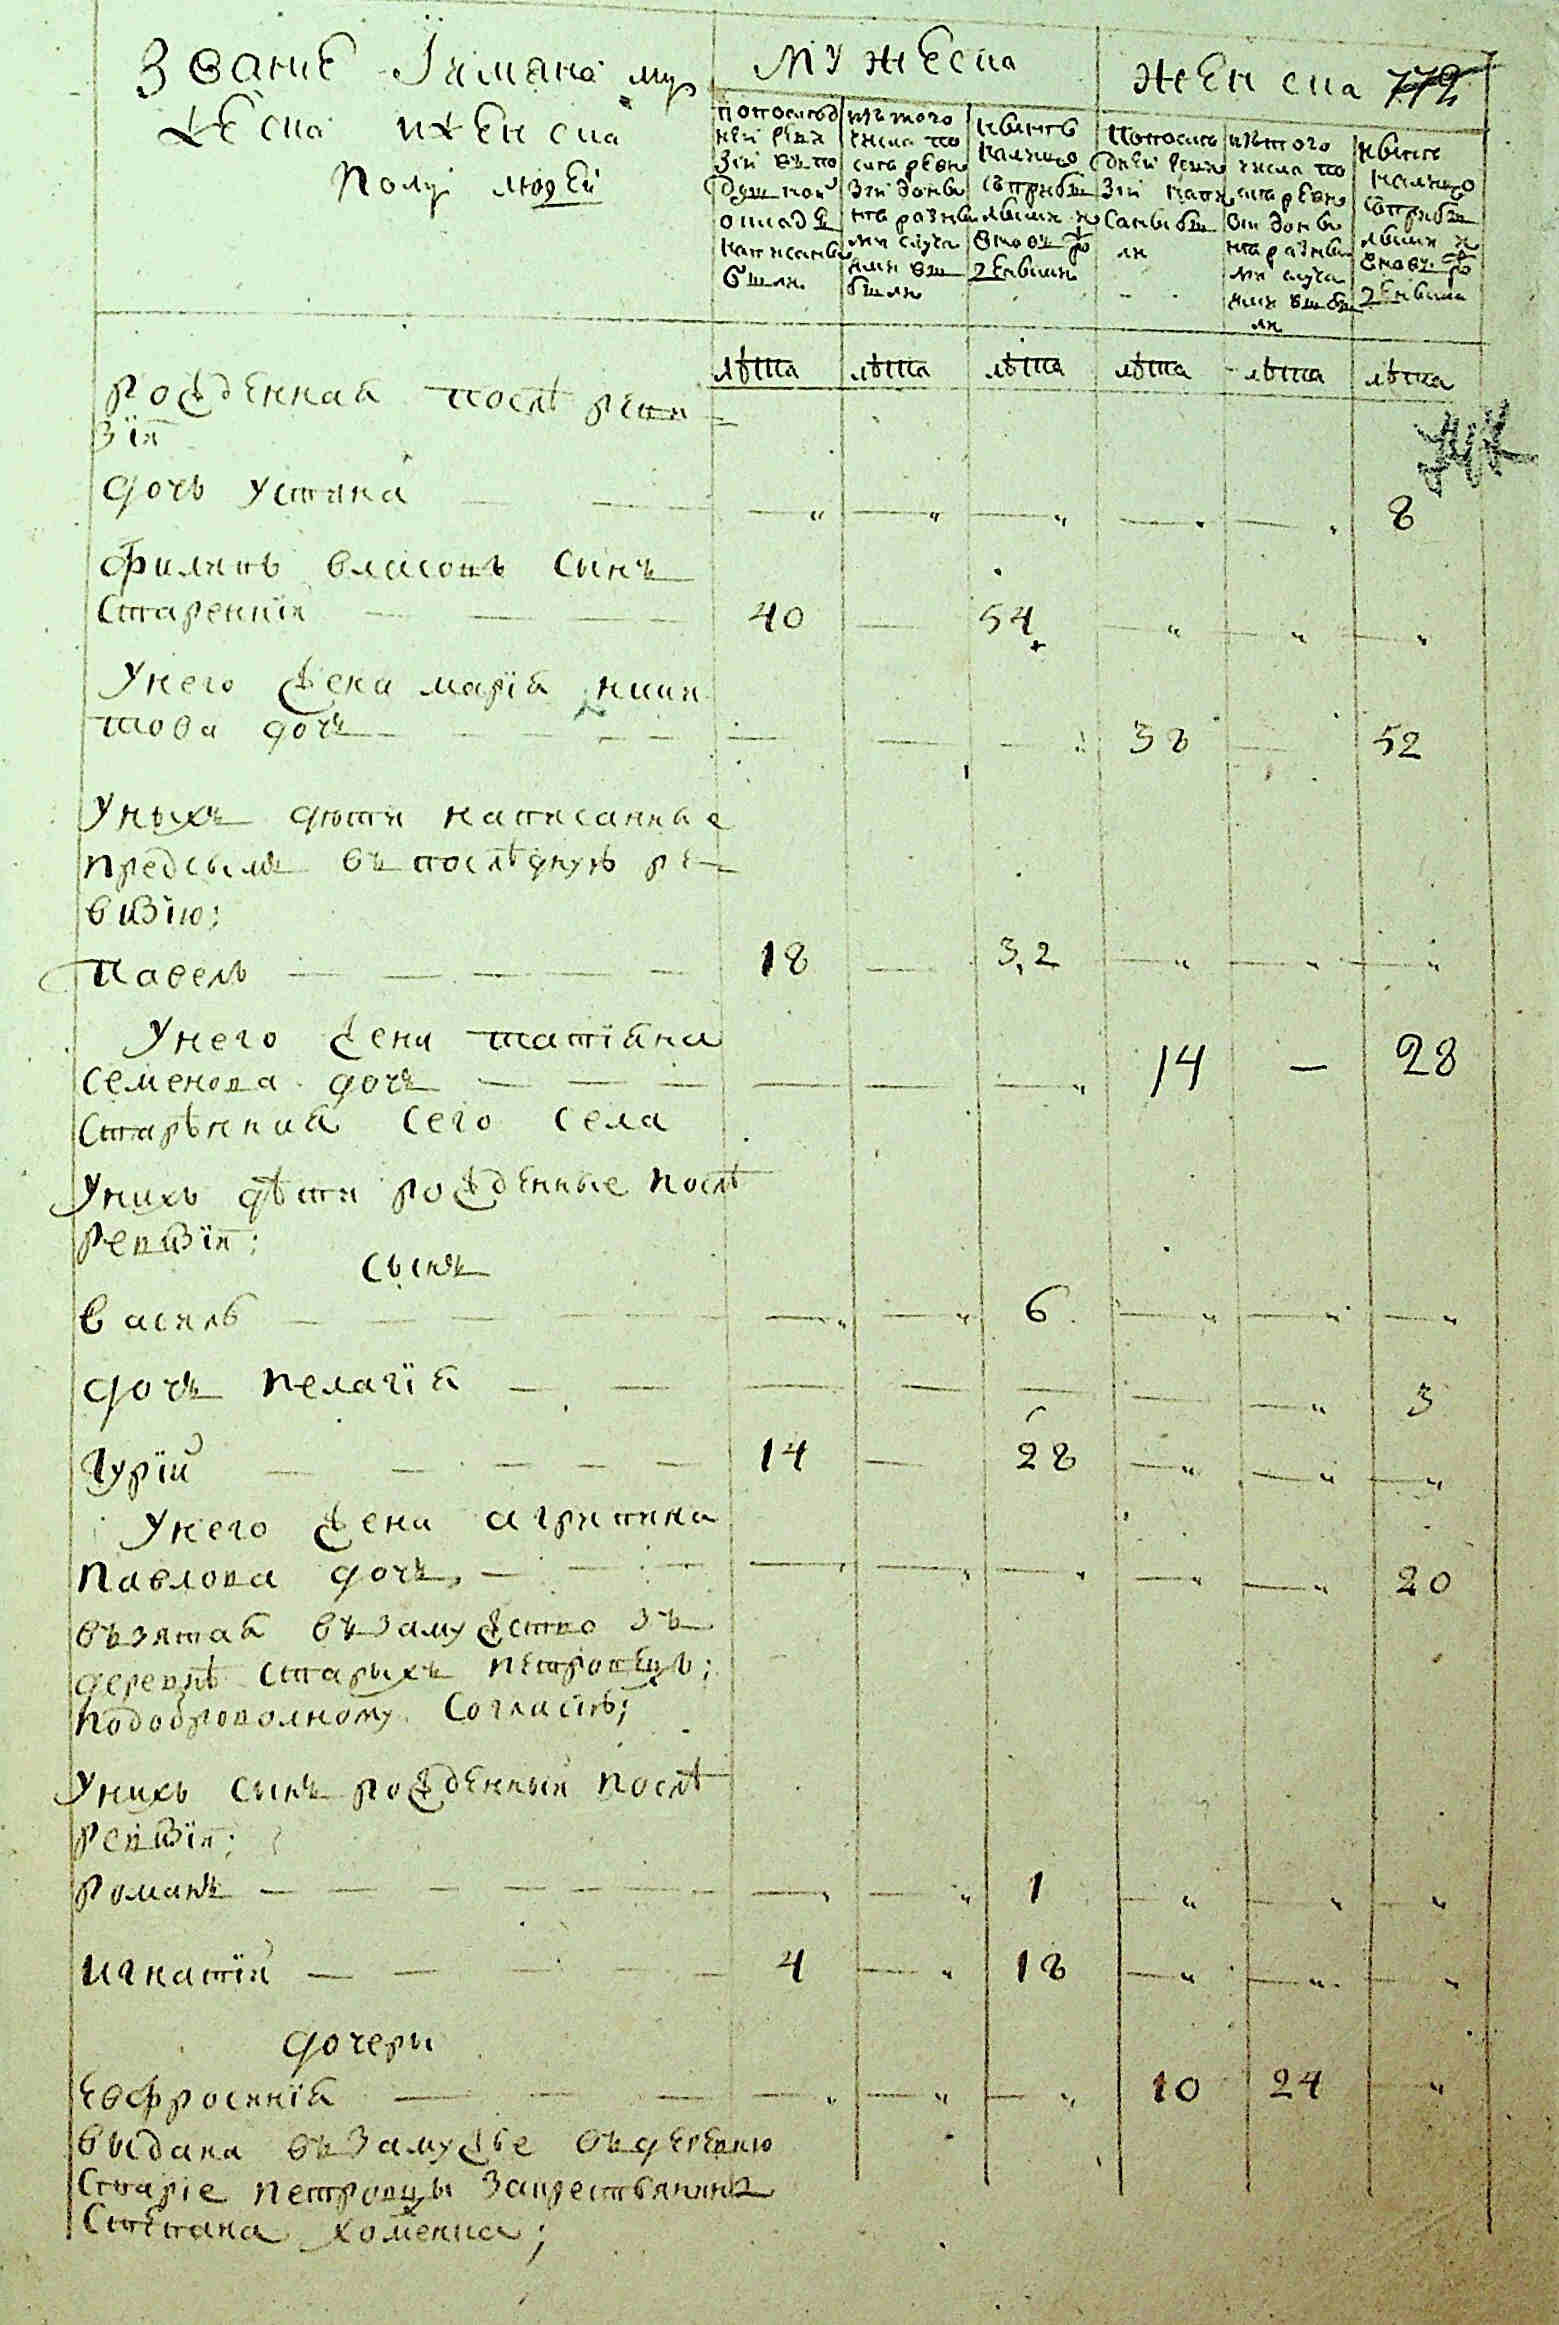 Званиѣ Їимяна му
жеска иженска
полу людей
мужеска
женска 772
попослѣд
ней реви
зїи въ по
душной
окладъ
написаны
были
изъ того
числа по
слѣ реви
зїи зоны
разны
ми случа
ями вы
были
нынѣ
налицо
съприбы
лыми и
вновь ро
жденыхъ
попослѣ
дней реви
зїи напи
саны бы
ли
изъ того
числа по
слѣ реви
разны
ми случа
ями выбы
ли
нынѣ
налицо
съприбы
лыми и
вновь ро
лѣта лѣта лѣта лѣта лѣта лѣта
рожденная послѣ реви
зїи
дочь устина 8
филипъ власовъ сынъ
старенній 40 54
унего жена марїя ники
това дочъ 38 52
уныхъ дѣти написанные
предсымъ въ послѣдную ре
визїю;
павелъ 18 32
унего жена татїяна
семенова дочъ 14 - 28
старѣнная сего села
унихъ дѣти рожденные послѣ
ревизїи;
сынъ
василь 6
дочъ пелагїя 3
гурїй 14 28
унего жена агрипина
павлова дочъ 20
възятая възамужство зъ
деревнѣ старыхъ петровецъ;
подобровольному согласїю;
унихъ сынъ рожденный послѣ
ревизїи;
романъ 1
игнатїй 4 18
дочери
евфросинїя 10 24
выдана възамужье въдеревню
старїе петровцы закрестьянина
степана хоменка;